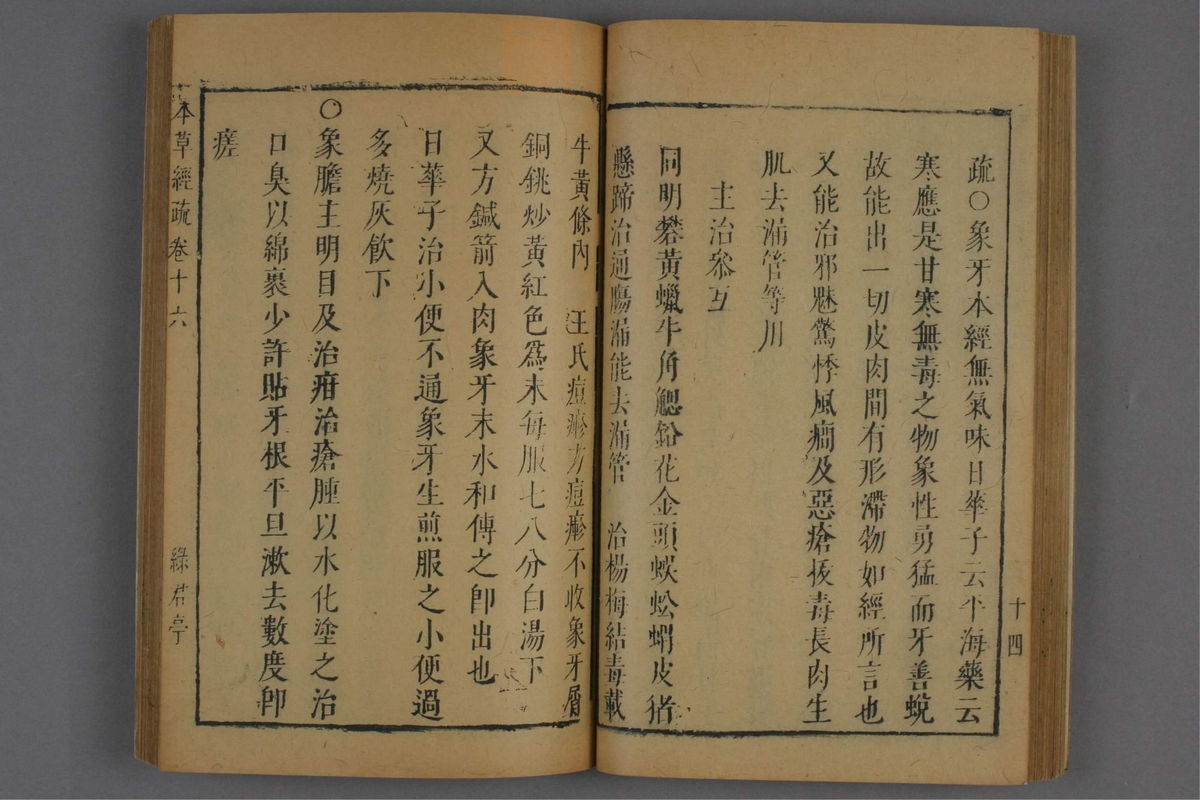 十四
疏○象牙本經無氣味日華子云平海藥云
寒應是甘寒無毒之物象性勇猛而牙善蛻
故能出一切皮肉間有形滯物如經所言也
又能治邪魅驚悸風癇及惡瘡拔毒長肉生
肌去漏管等用
主治參互
同明礬黃蠟牛角䚡鉛花金頭蜈蚣蝟皮猪
懸蹄治通腸漏能去漏管　治楊梅結毒載
牛黃條內　王氏痘瘮方痘瘮不收象牙屑
銅銚炒黃紅色爲末每服七八分白湯下
又方鍼箭入肉象牙末水和傅之卽出也
日華子治小便不通象牙生煎服之小便過
多燒灰飮下
○象膽主明目及治疳治瘡腫以水化塗之治
口臭以綿裹少許貼牙根平旦漱去數度卽
瘥
本草經疏卷十六
綠君亭